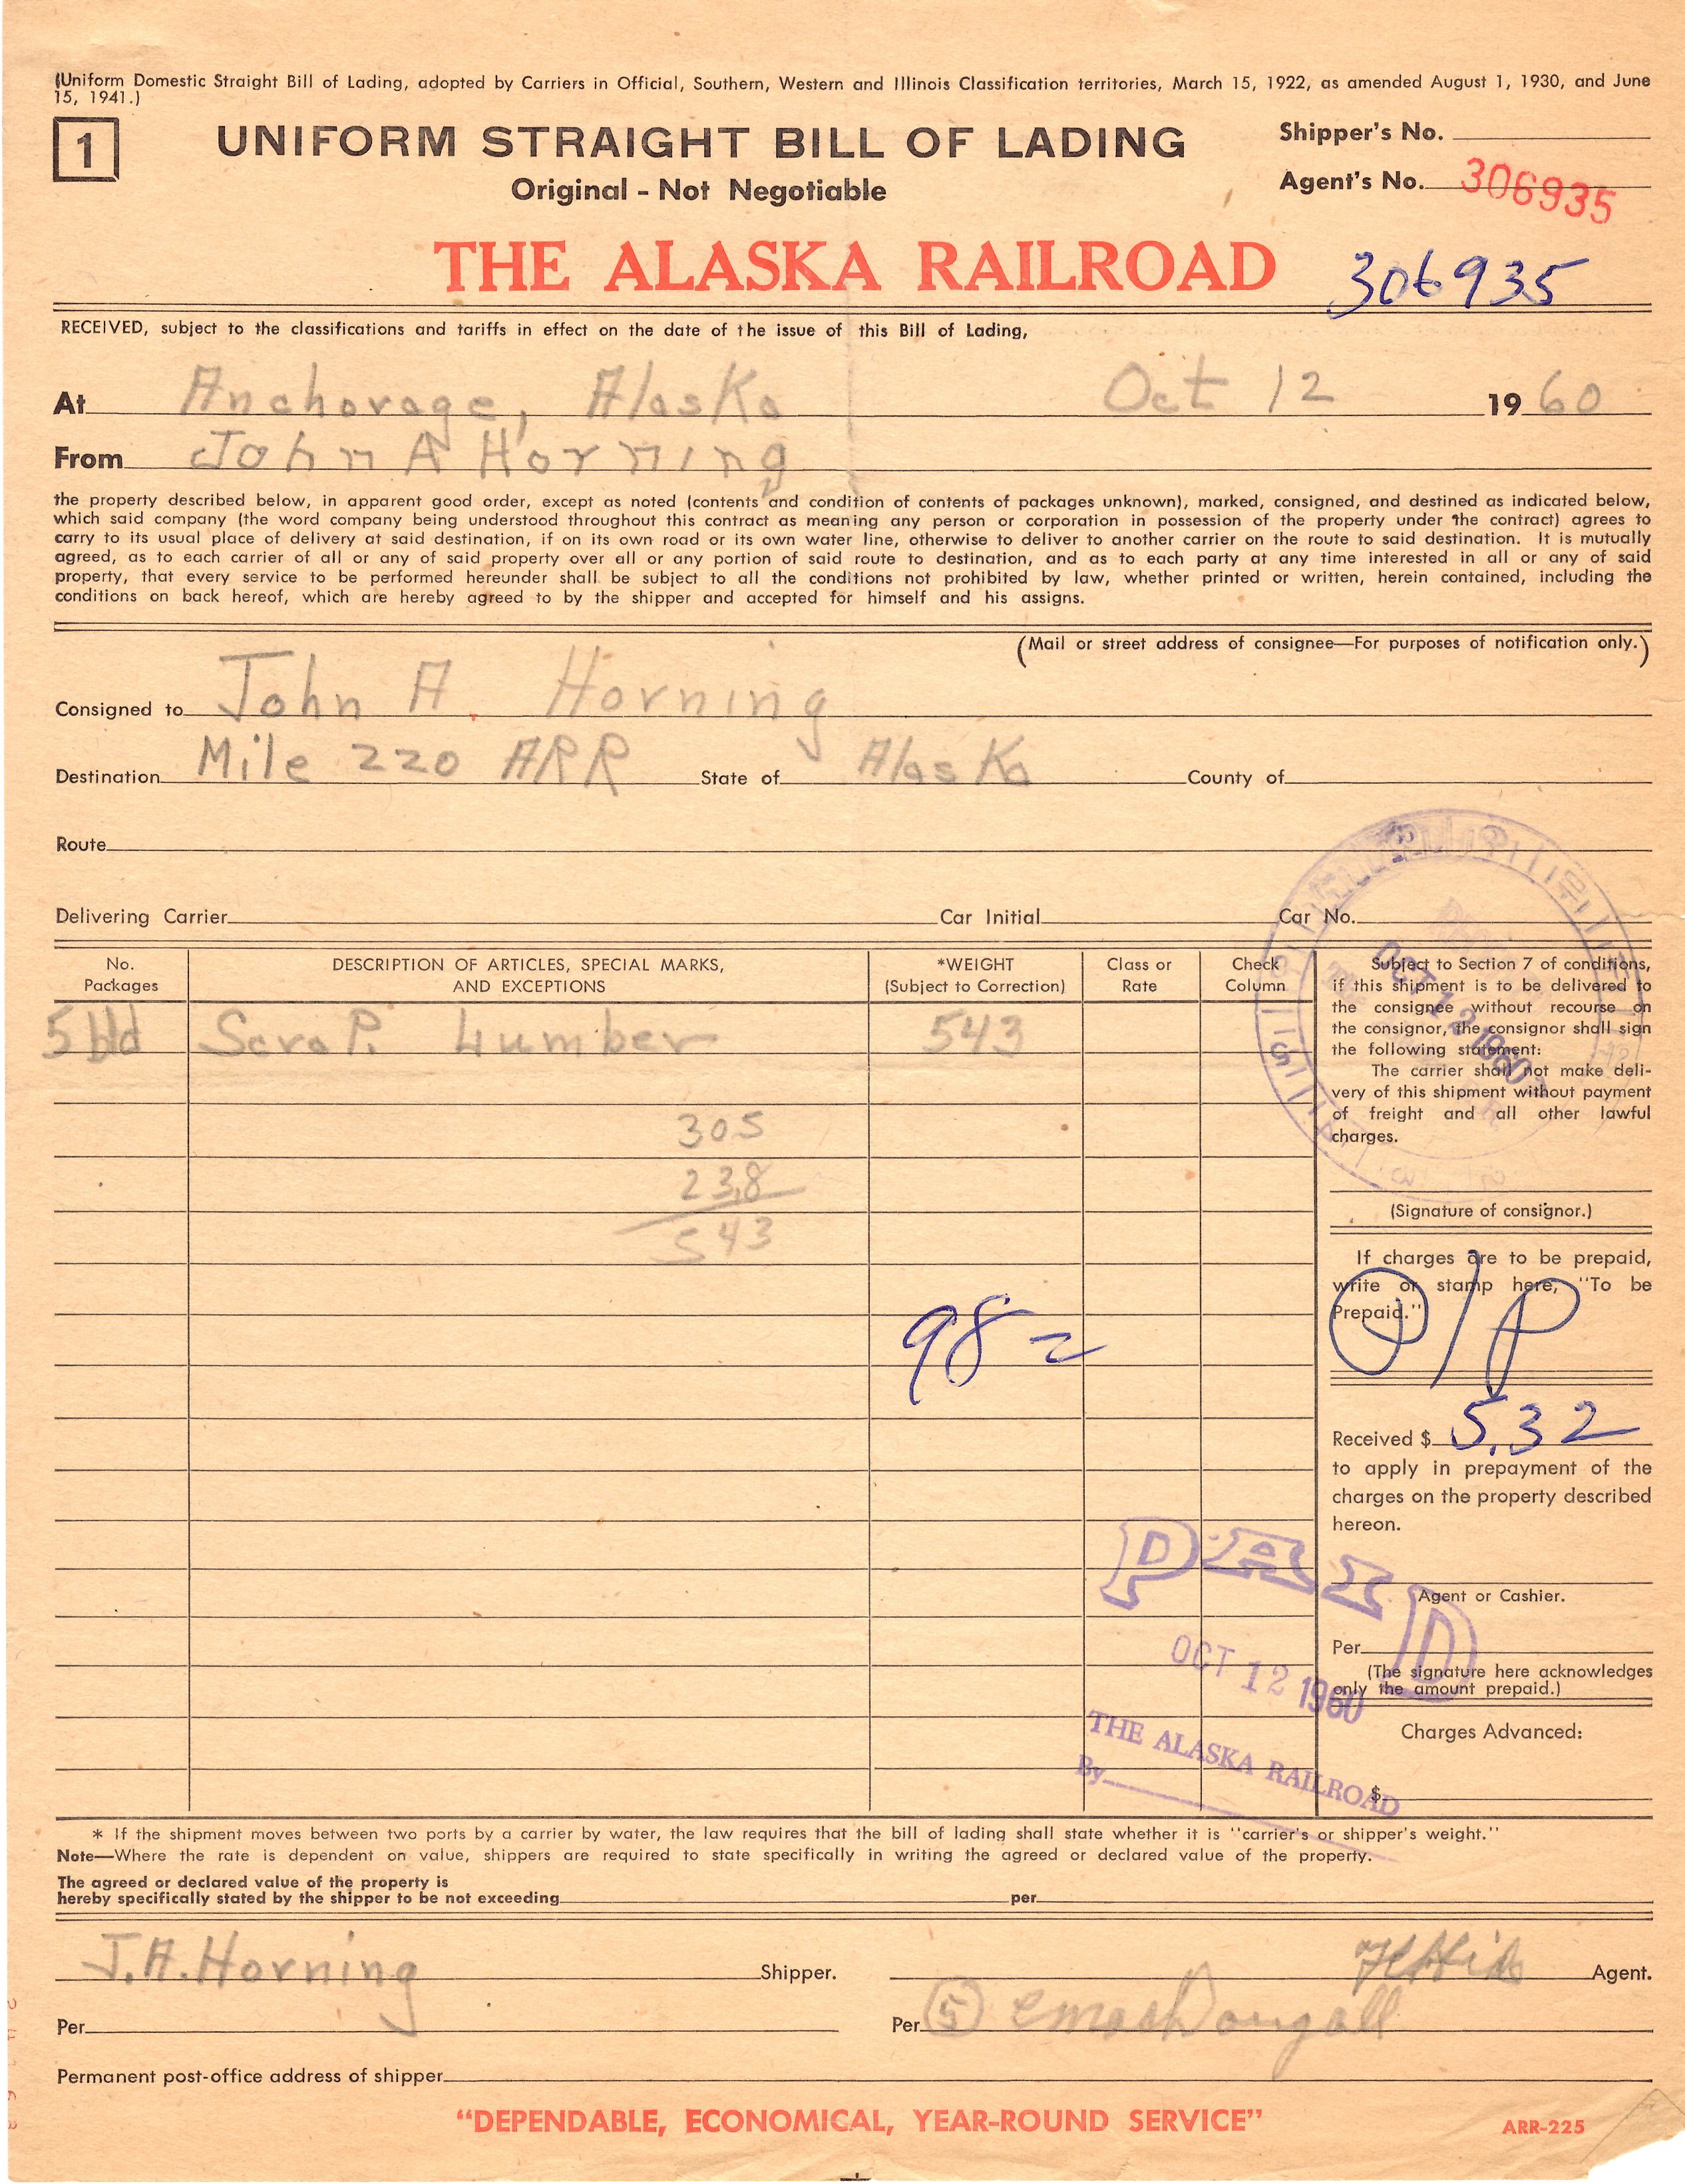 (Uniform Domestic Straight Bill of Lading, adopted by Carriers in Official, Southern, Western and Illinois Classification territories, March 15, 1922, as amended August 1, 1930, and June
15, 1941.)
1
UNIFORM STRAIGHT BILL OF LADING
Original - Not Negotiable
Shipper's No.
Agent's No. 306935
THE ALASKA RAILROAD
306935
RECEIVED, subject to the classifications and tariffs in effect on the date of the issue of this Bill of Lading,
At Anchorage, Alaska Oct 12 1960
From John A Horning
the property described below, in apparent good order, except as noted (contents and condition of contents of packages unknown), marked, consigned, and destined as indicated below,
which said company (the word company being understood throughout this contract as meaning any person or corporation in possession of the property under the contract) agrees to
carry to its usual place of delivery at said destination, if on its own road or its own water line, otherwise to deliver to another carrier on the route to said destination. It is mutually
agreed, as to each carrier of all or any of said property over all or any portion of said route to destination, and as to each party at any time interested in all or any of said
property, that every service to be performed hereunder shall be subject to all the conditions not prohibited by law, whether printed or written, herein contained, including the
conditions on back hereof, which are hereby agreed to by the shipper and accepted for himself and his assigns.
(Mail or street address of consignee—For purposes of notification only.)
Consigned to John A. Horning
Destination Mile 220 ARR State of Alaska County of
Route
Delivering Carrier Car Initial Car No.
No.
Packages
DESCRIPTION OF ARTICLES, SPECIAL MARKS,
AND EXCEPTIONS
*WEIGHT
(Subject to Correction)
Class or
Rate
Check
Column
5 bld Scrap. Lumber 543
305
238
543
98
OCT 12 1960
Subject to Section 7 of conditions,
if this shipment is to be delivered to
the consignee without recourse on
the consignor, the consignor shall sign
the following statement:
The carrier shall not make deli-
very of this shipment without payment
of freight and all other lawful
charges.
(Signature of consignor.)
If charges are to be prepaid,
write or stamp here, "To be
Prepaid."
Received $ 5.32
to apply in prepayment of the
charges on the property described
hereon.
Agent or Cashier.
Per
(The signature here acknowledges
only the amount prepaid.)
Charges Advanced:
$
PAID
OCT 12 1960
THE ALASKA RAILROAD
By
* If the shipment moves between two ports by a carrier by water, the law requires that the bill of lading shall state whether it is "carrier's or shipper's weight."
Note—Where the rate is dependent on value, shippers are required to state specifically in writing the agreed or declared value of the property.
The agreed or declared value of the property is
hereby specifically stated by the shipper to be not exceeding per
J.A. Horning Shipper. Agent.
Per Per 5 emacDougall
Permanent post-office address of shipper
"DEPENDABLE, ECONOMICAL, YEAR-ROUND SERVICE"
ARR-225